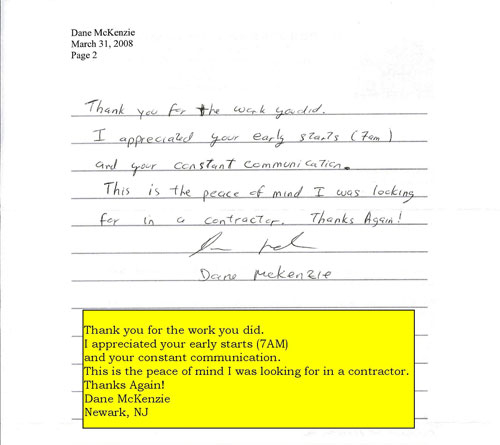 Dane McKenzie
March 31, 2008
Page 2
Thank you for the work you did.
I appreciated your early starts (7am)
and your constant communication.
This is the peace of mind I was looking
for in a contractor. Thanks Again!
Dane McKenzie
Thank you for the work you did.
I appreciated your early starts (7AM)
and your constant communication.
This is the peace of mind I was looking for in a contractor.
Thanks Again!
Dane McKenzie
Newark, NJ